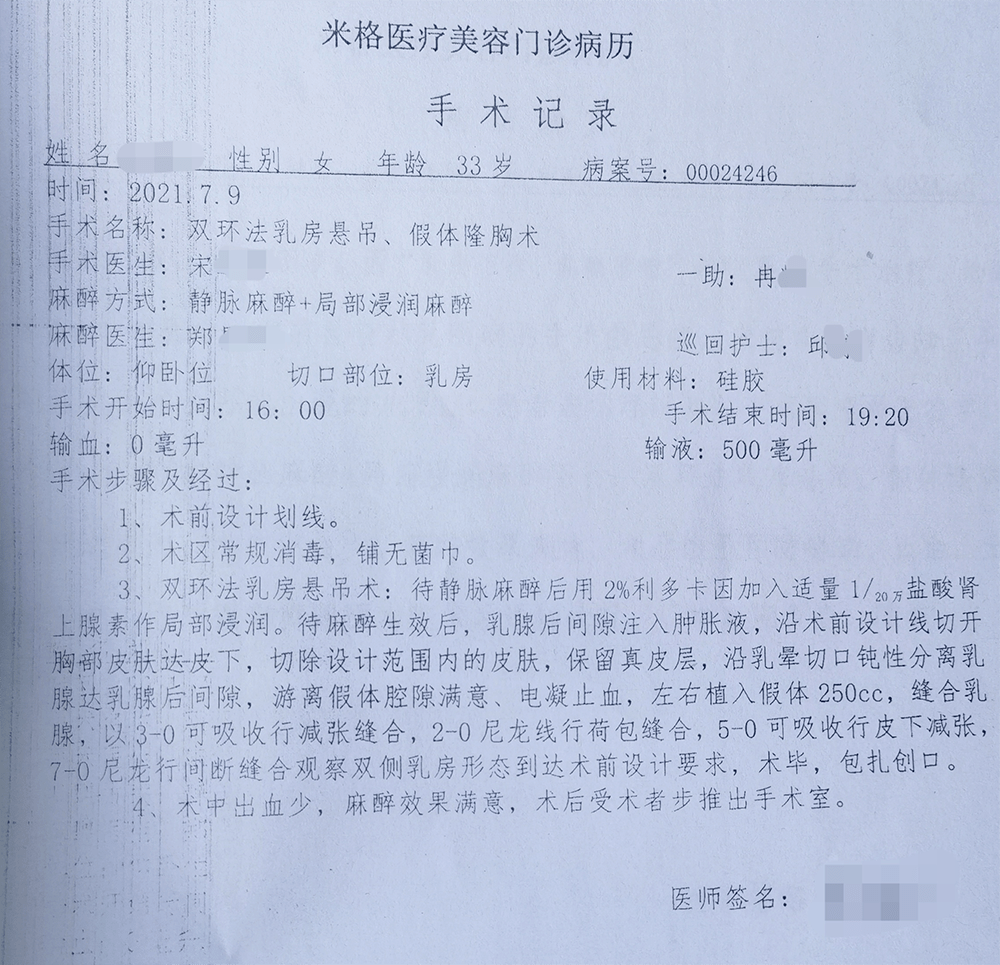 米格医疗美容门诊病历
手 术 记 录
姓 名 性别 女 年龄 33岁 病案号：00024246
时间：2021.7.9
手术名称：双环法乳房悬吊、假体隆胸术
手术医生：宋 一助：冉
麻醉方式：静脉麻醉+局部浸润麻醉
麻醉医生：郑 巡回护士：邱
体位：仰卧位 切口部位：乳房 使用材料：硅胶
手术开始时间：16：00 手术结束时间：19:20
输血：0毫升 输液：500毫升
手术步骤及经过：
1、术前设计划线。
2、术区常规消毒，铺无菌巾。
3、双环法乳房悬吊术：待静脉麻醉后用2%利多卡因加入适量1/20万盐酸肾
上腺素作局部浸润。待麻醉生效后，乳腺后间隙注入肿胀液，沿术前设计线切开
胸部皮肤达皮下，切除设计范围内的皮肤，保留真皮层，沿乳晕切口钝性分离乳
腺达乳腺后间隙，游离假体腔隙满意、电凝止血，左右植入假体250cc，缝合乳
腺，以3-0可吸收行减张缝合，2-0尼龙线行荷包缝合，5-0可吸收行皮下减张，
7-0尼龙行间断缝合观察双侧乳房形态到达术前设计要求，术毕，包扎创口。
4、术中出血少，麻醉效果满意，术后受术者步推出手术室。
医师签名：